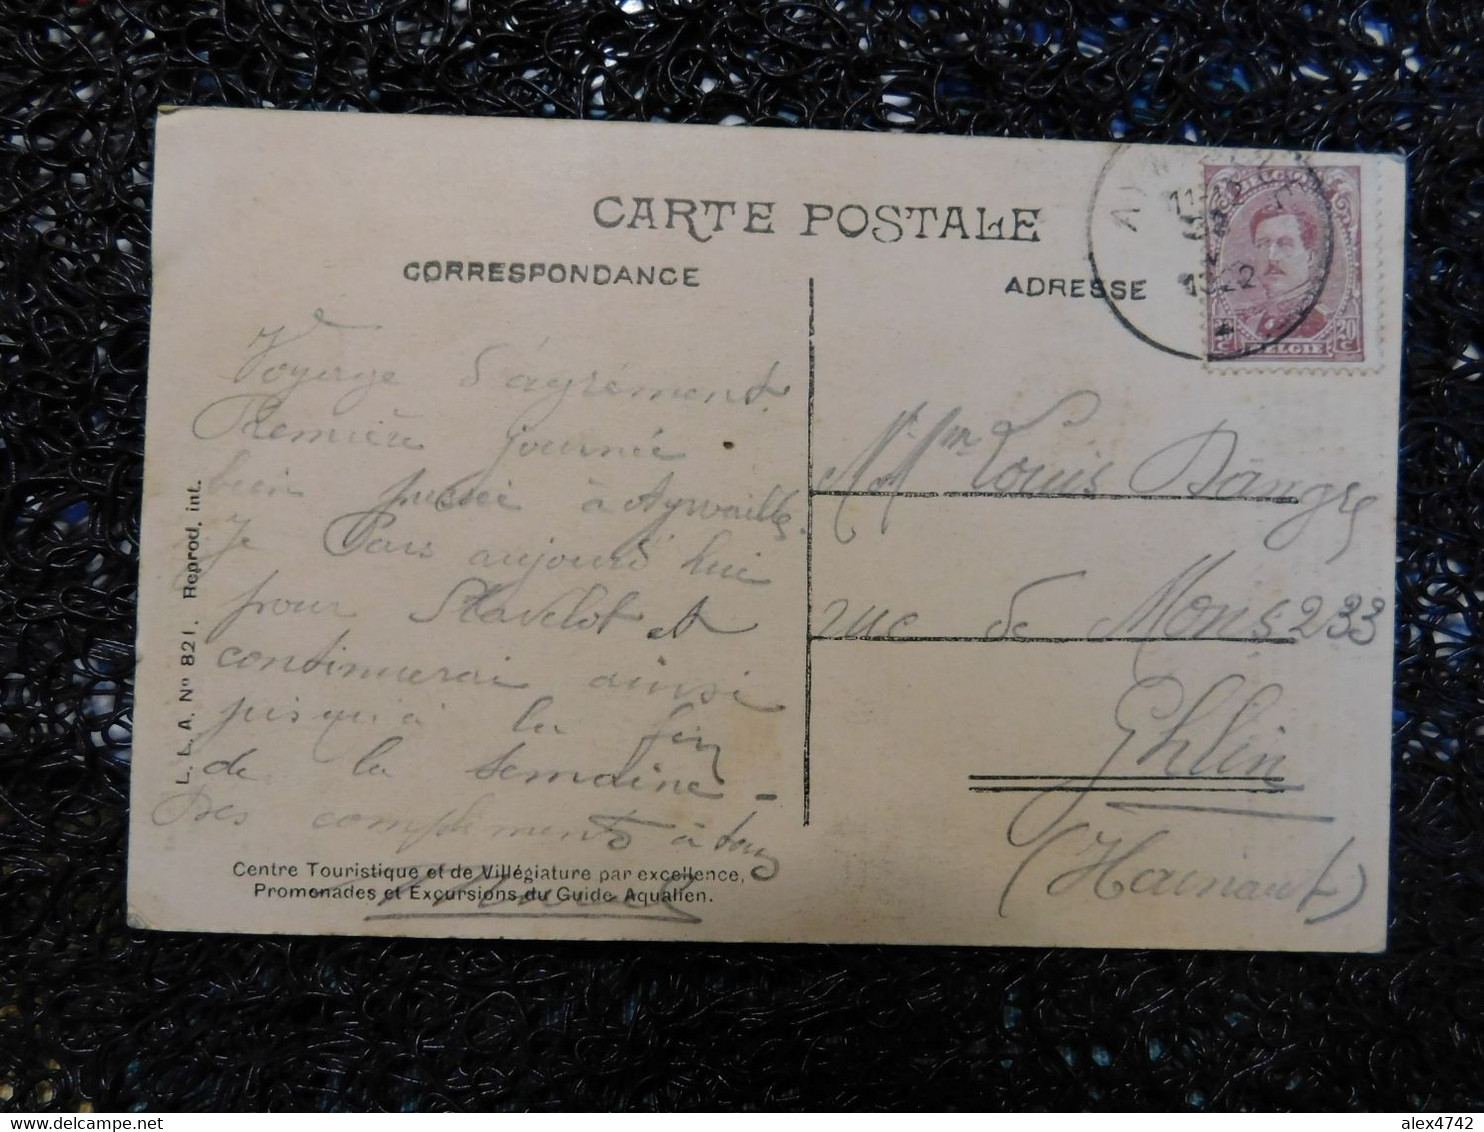 CARTE POSTALE
CORRESPONDANCE
ADRESSE
BELGIQUE
20 C
BELGIE
1922
Voyage d'agrément.
Première journée
bien passé à Aywaille.
Je Pars aujourd'hui
pour Stavelot et
continuerai ainsi
jusqu'à la fin
de la semaine -
Des compliments à tous
Mme Louis Dangre
rue de Mons 233
Ghlin
(Hainaut)
L. L. A. No 821. Reprod. int.
Centre Touristique et de Villégiature par excellence,
Promenades et Excursions du Guide Aqualien.
alex4742